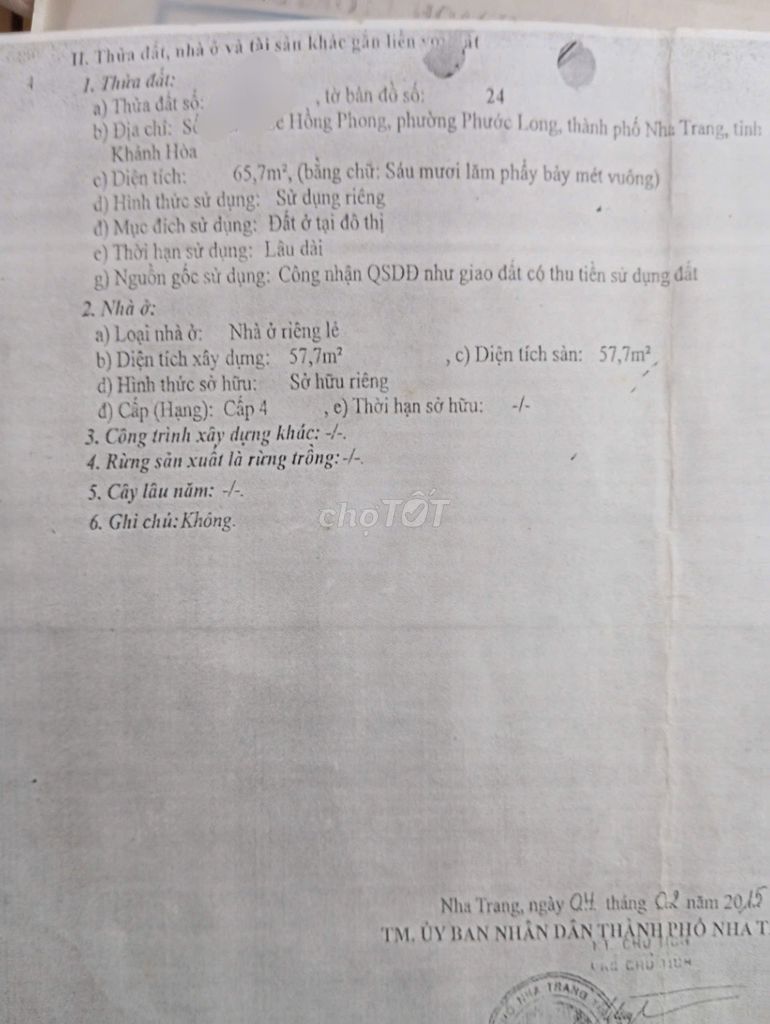 II. Thửa đất, nhà ở và tài sản khác gắn liền với đất
1. Thửa đất:
a) Thửa đất số: , tờ bản đồ số: 24
b) Địa chỉ: Hồng Phong, phường Phước Long, thành phố Nha Trang, tỉnh
Khánh Hòa
c) Diện tích: 65,7m², (bằng chữ: Sáu mươi lăm phẩy bảy mét vuông)
d) Hình thức sử dụng: Sử dụng riêng
đ) Mục đích sử dụng: Đất ở tại đô thị
e) Thời hạn sử dụng: Lâu dài
g) Nguồn gốc sử dụng: Công nhận QSDĐ như giao đất có thu tiền sử dụng đất
2. Nhà ở:
a) Loại nhà ở: Nhà ở riêng lẻ
b) Diện tích xây dựng: 57,7m² , c) Diện tích sàn: 57,7m²
d) Hình thức sở hữu: Sở hữu riêng
đ) Cấp (Hạng): Cấp 4 , e) Thời hạn sở hữu: -/-
3. Công trình xây dựng khác: -/-.
4. Rừng sản xuất là rừng trồng: -/-.
5. Cây lâu năm: -/-.
6. Ghi chú: Không.
chợTỐT
Nha Trang, ngày 04 tháng 02 năm 2015
TM. ỦY BAN NHÂN DÂN THÀNH PHỐ NHA T
KT. CHỦ TỊCH
PHÓ CHỦ TỊCH
NHA TRANG